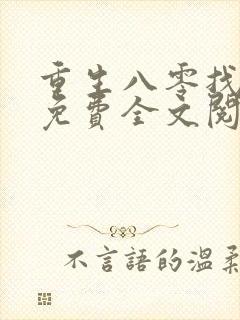 重生八零找
免費全文閱
不言語的溫柔